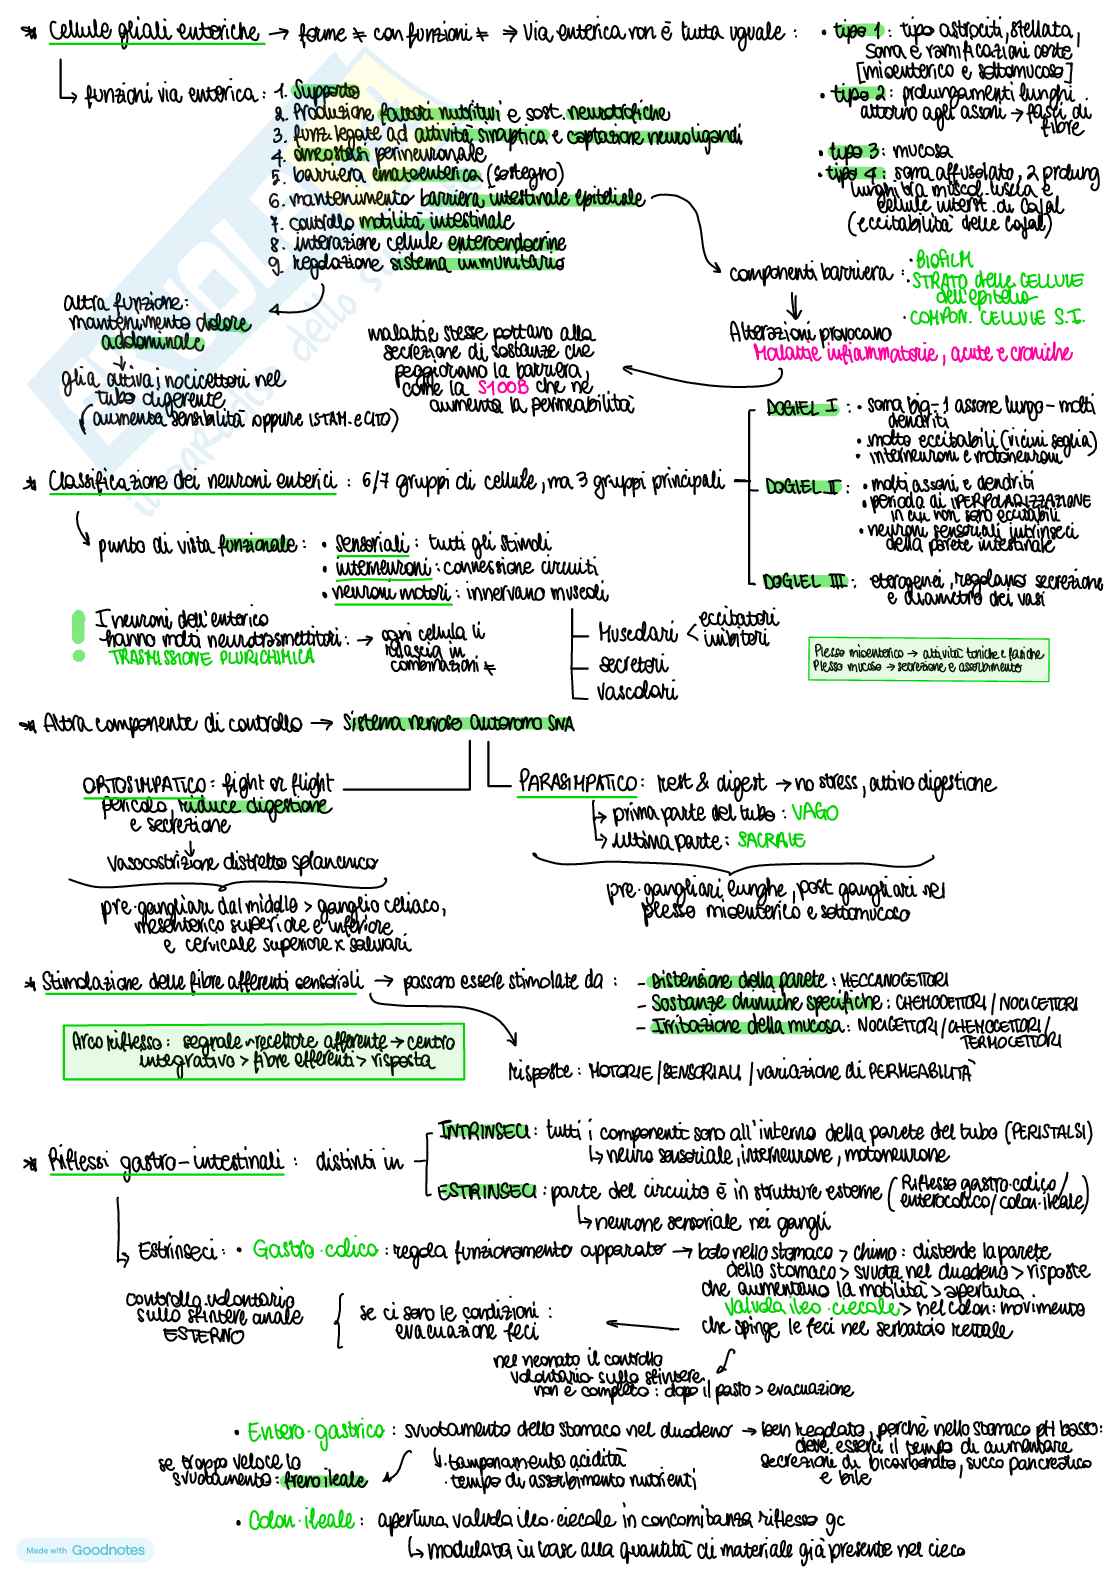 * Cellule gliali enteriche → forme ≠ con funzioni ≠ ⇒ via enterica non è tutta uguale :
• tipo 1 : tipo astrociti, stellata,
soma e ramificazioni corte
[mioenterico e sottomucoso]
• tipo 2 : prolungamenti lunghi
attorno agli assoni → fasci di
fibre
• tipo 3 : mucosa
• tipo 4 : soma affusolato, 2 prolung
lunghi tra muscol. liscia e
cellule interst. di Cajal
(eccitabilità delle Cajal)
↳ funzioni via enterica : 1. Supporto
2. Produzione fattori nutritivi e sost. neurotrofiche
3. funz. legate ad attività sinaptica e captazione neuroligandi
4. omeostasi perineuronale
5. barriera ematoenterica (sostegno)
6. mantenimento barriera intestinale epiteliale
7. controllo motilità intestinale
8. interazione cellule enteroendocrine
9. regolazione sistema immunitario
componenti barriera :
• BIOFILM
• STRATO delle CELLULE
dell'epitelio
• COMPON. CELLULE S.I.
Alterazioni provocano
Malattie infiammatorie, acute e croniche
malattie stesse portano alla
secrezione di sostanze che
peggiorano la barriera,
come la S100B che ne
aumenta la permeabilità
altra funzione:
mantenimento dolore
addominale
glia attiva i nocicettori nel
tubo digerente
(aumenta sensibilità oppure ISTAM. e CITO)
* Classificazione dei neuroni enterici : 6/7 gruppi di cellule, ma 3 gruppi principali
DOGIEL I : • soma big - 1 assone lungo - molti
dendriti
• molto eccitabili (vicini soglia)
• interneuroni e motoneuroni
DOGIEL II : • molti assoni e dendriti
• periodo di IPERPOLARIZZAZIONE
in cui non sono eccitabili
• neuroni sensoriali intrinseci
della parete intestinale
DOGIEL III : eterogenei, regolano secrezione
e diametro dei vasi
punto di vista funzionale : • sensoriali : tutti gli stimoli
• interneuroni : connessione circuiti
• neuroni motori : innervano muscoli
Muscolari < eccitatori
inibitori
secretori
vascolari
I neuroni dell'enterico
hanno molti neurotrasmettitori : → ogni cellula li
rilascia in
combinazioni ≠
TRASMISSIONE PLURICHIMICA
Plesso mioenterico → attività toniche e fasiche
Plesso mucoso → secrezione e assorbimento
* Altra componente di controllo → Sistema nervoso autonomo SNA
ORTOSIMPATICO : fight or flight
pericolo, riduce digestione
e secrezione
↓
vasocostrizione distretto splancnico
pre-gangliari dal midollo > ganglio celiaco,
mesenterico superiore e inferiore
e cervicale superiore x salivari
PARASIMPATICO : rest & digest → no stress, attivo digestione
↳ prima parte del tubo : VAGO
↳ ultima parte : SACRALE
pre-gangliari lunghe, post gangliari nel
plesso mioenterico e sottomucoso
* Stimolazione delle fibre afferenti sensoriali → possono essere stimolate da :
- Distensione della parete : MECCANOCETTORI
- Sostanze chimiche specifiche : CHEMOCETTORI / NOCICETTORI
- Irritazione della mucosa : NOCICETTORI / CHEMOCETTORI /
TERMOCETTORI
Arco riflesso : segnale ~ recettore afferente → centro
integrativo > fibre efferenti > risposta
risposte : MOTORIE / SENSORIALI / variazione di PERMEABILITÀ
* Riflessi gastro-intestinali : distinti in
INTRINSECI : tutti i componenti sono all'interno della parete del tubo (PERISTALSI)
↳ neuro sensoriale, interneurone, motoneurone
ESTRINSECI : parte del circuito è in strutture esterne (Riflesso gastro-colico /
enterocolico / colon-ileale)
↳ neurone sensoriale nei gangli
Estrinseci : • Gastro-colico : regola funzionamento apparato → bolo nello stomaco > chimo : distende la parete
dello stomaco > svuota nel duodeno > risposte
che aumentano la motilità > apertura
valvola ileo-ciecale > nel colon : movimento
che spinge le feci nel serbatoio rettale
se ci sono le condizioni :
evacuazione feci
controllo volontario
sullo sfintere anale
ESTERNO
nel neonato il controllo
volontario sullo sfintere
non è completo : dopo il pasto > evacuazione
• Entero-gastrico : svuotamento dello stomaco nel duodeno → ben regolato, perchè nello stomaco pH basso :
deve esserci il tempo di aumentare
secrezione di bicarbonato, succo pancreatico
e bile
• tamponamento acidità
• tempo di assorbimento nutrienti
se troppo veloce lo
svuotamento : freno ileale
• Colon-ileale : apertura valvola ileo-ciecale in concomitanza riflesso gc
↳ modulata in base alla quantità di materiale già presente nel cieco
Made with Goodnotes